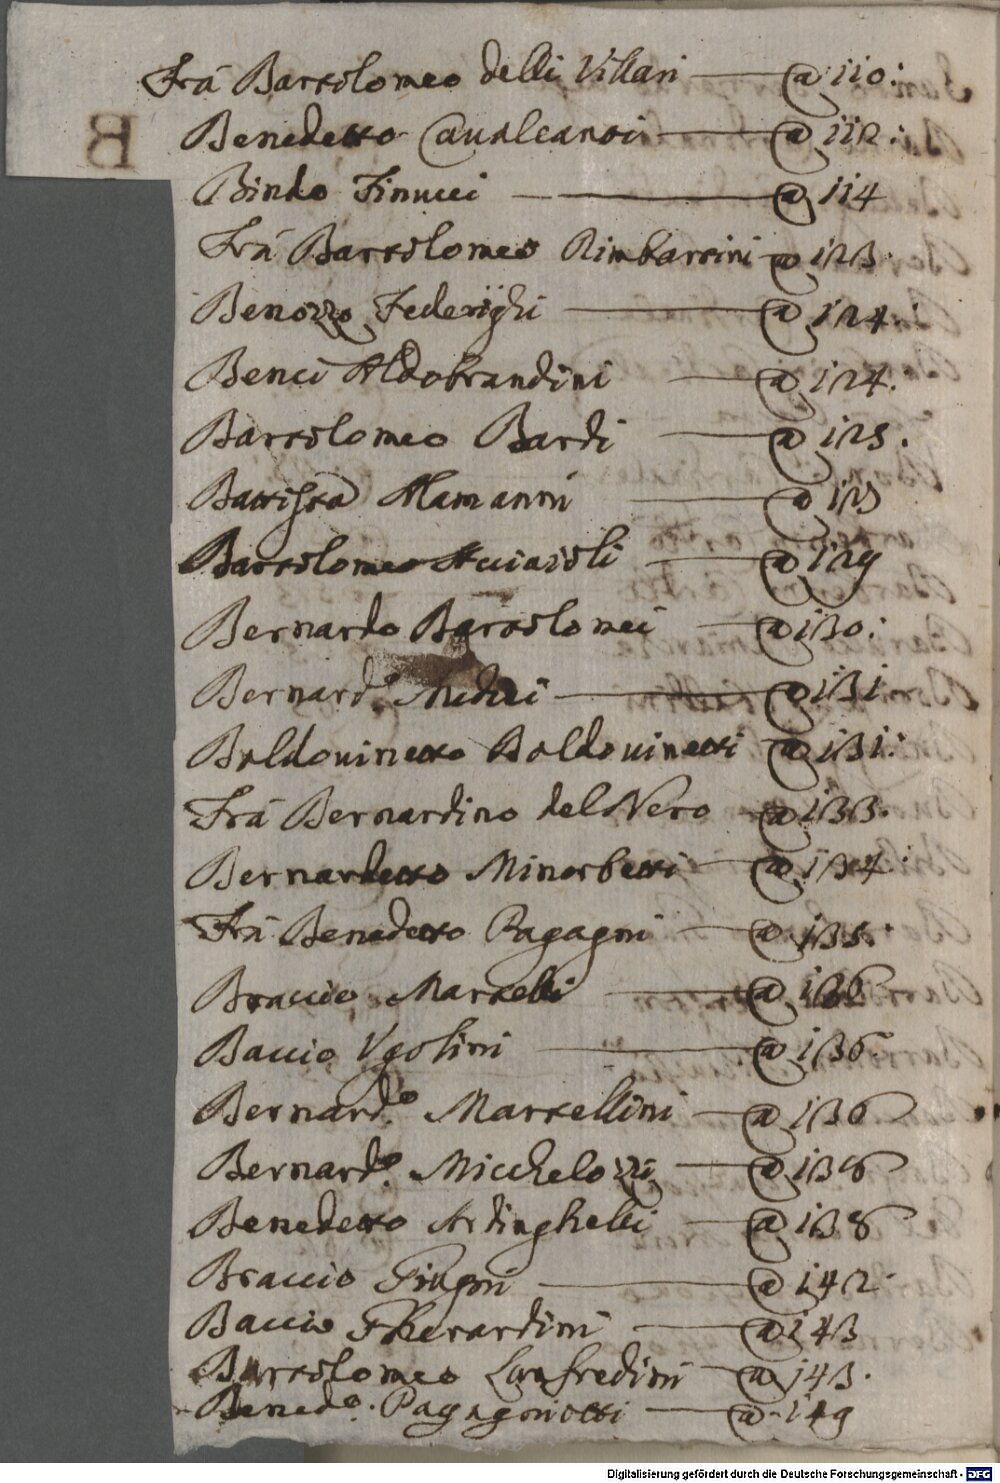 Frà Bartolomeo delli Villari @ 110:
Benedetto Caualcanti @ 112:
B
Bindo Finucci @ 114
Frà Bartolomeo Rimbattini @ 123.
Benozzo Federighi @ 124.
Benci Aldobrandini @ 124.
Bartolomeo Bardi @ 125.
Battista Alamanni @ 125
Bartolomeo Acciaioli @ 129
Bernardo Bartolomei @ 130.
Bernard.o Medici @ 131.
Baldouinetto Baldouinetti @ 131.
Frà Bernardino del Nero @ 133.
Bernardetto Minorbetti @ 134.
Frà Benedetto Pagagni @ 135.
Braccio Martelli @ 136
Baccio Vgolini @ 136.
Bernard.o Martellini @ 136
Bernard.o Micchelozzi @ 138
Benedetto Ardinghelli @ 138
Braccio @ 142.
Baccio Gherardini @ 143
Bartolomeo Lanfredini @ 143.
Bened.o Pagagniotti @ 149
Digitalisierung gefördert durch die Deutsche Forschungsgemeinschaft - DFG